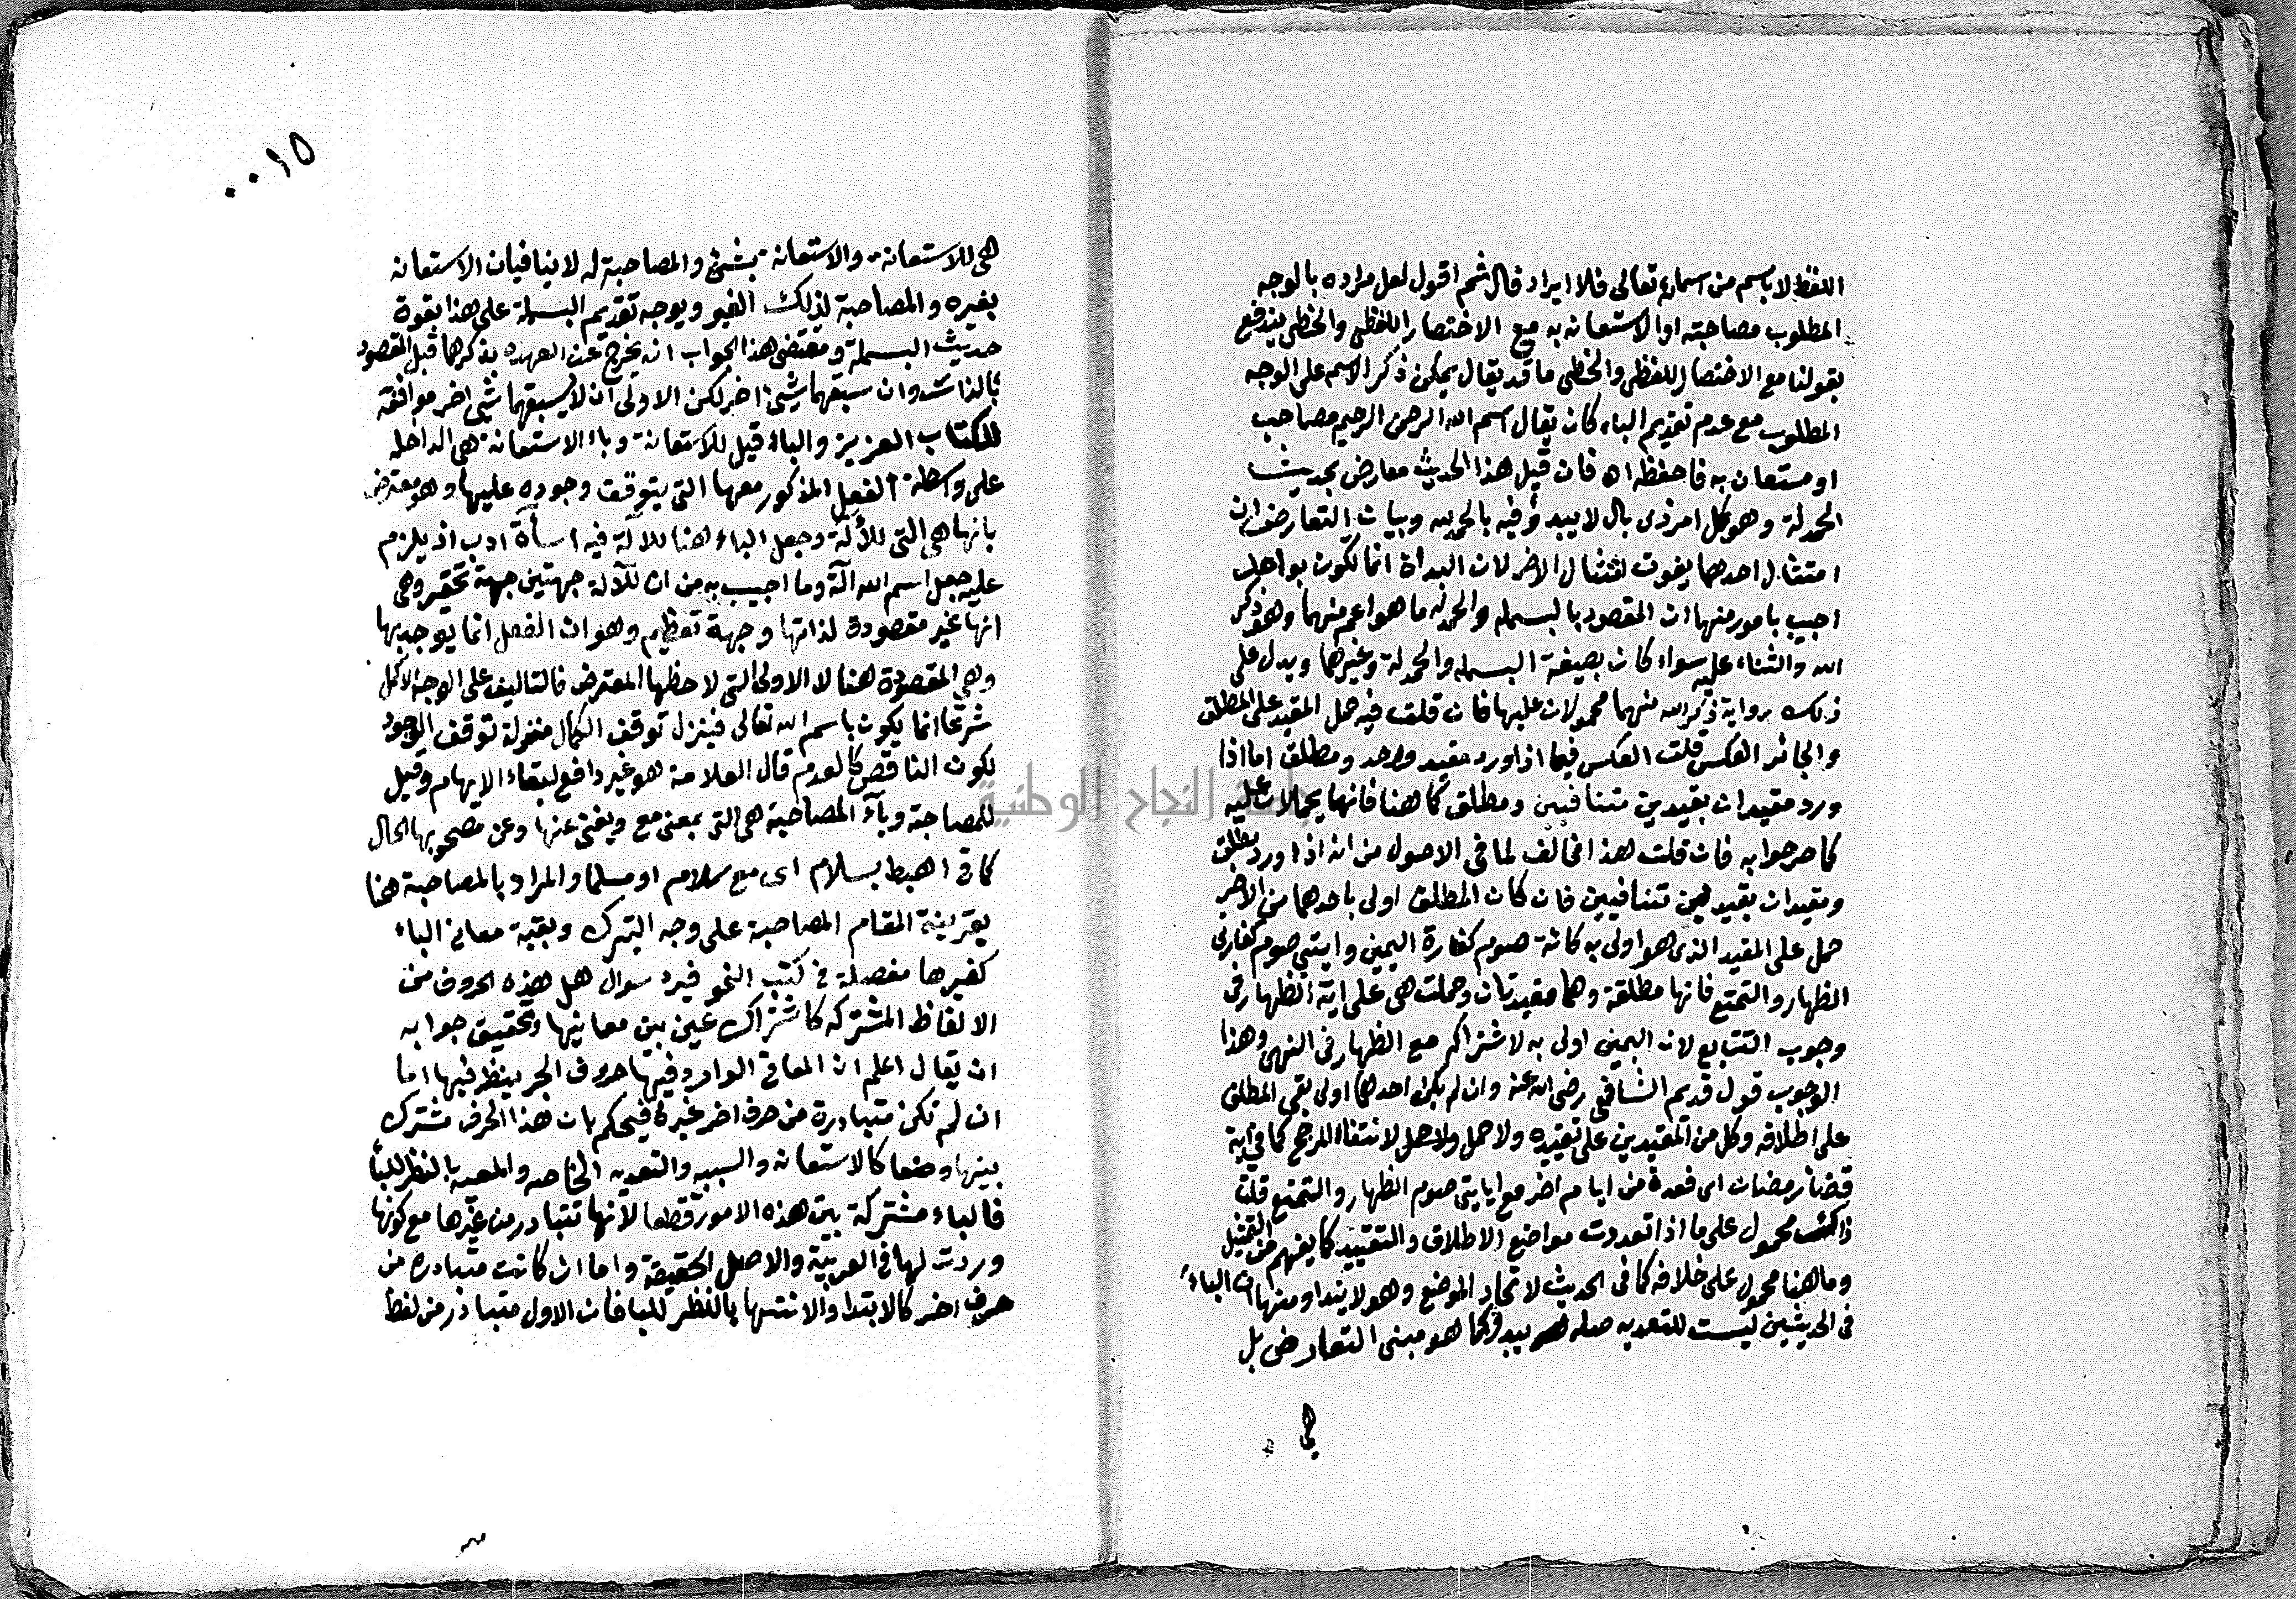 اللفظ لا باسم من اسمائه تعالى فلا ايراد قال ثم اقول لعل مراده بالوجه
المطلوب مصاحبته او الاستعانه به مع الاختصار اللفظي والخطي يندفع
بقولنا مع الاختصار اللفظي والخطي ما قد يقال يمكن ذكر الاسم على الوجه
المطلوب مع عدم تقديم الباء كان يقال اسم الله الرحمن الرحيم مصاحب
او مستعان به فاحفظه اه فان قيل هذا الحديث معارض بحديث
الحمدلة وهو كل امر ذى بال لا يبدؤ فيه بالحمد لله وبيان التعارض ان
امتثال احدهما يفوت امتثال الاخر لان البدأة انما تكون بواحد
اجيب بامور منها ان المقصود بالبسملة والحمدله ما هو اعم منهما وهو ذكر
الله والثناء عليه سواء كان بصيغة البسملة والحمدلة وغيرهما ويدل على
ذلك رواية ذكر الله منهما محمولان عليها فان قلت فيه حمل المقيد على المطلق
والجائز العكس قلت العكس فيما اذا ورد مقيد واحد ومطلق اما اذا
ورد مقيدان بقيدين متنافيين ومطلق كما هنا فانهما يحملان عليه
كما صرحوا به فان قلت هذا مخالف لما فى الاصول من انه اذا ورد مطلق
ومقيدان بقيدين متنافيين فان كان المطلق اولى باحدهما من الاخر
حمل على المقيد الذى هو اولى به كاية صوم كفارة اليمين وايتي صوم كفارتى
الظهار والتمتع فانها مطلقة وهما مقيدتان وحملت هى على اية الظهار فى
وجوب التتابع لان اليمين اولى به لاشتراكهم مع الظهار فى النهى وهذا
الوجوب قول قديم الشافعي رضى الله عنه وان لم يكن احدهما اولى بقى المطلق
على اطلاقه وكل من المقيدين على تقييده ولا حمل لانتفاء المرجح كما فى اية
قضاء رمضان اى فعدة من ايام اخر مع ايايتى صوم الظهار والتمتع قلت
ذاك محمول على ما اذا تعددت مواضع الاطلاق والتقييد كما يفهم من التمثيل
وما هنا محمول على خلافه كما فى الحديث لاتحاد الموضع وهو لا يتدا ومنها ان الباء
فى الحديثين ليست للتعديه صلة يبدؤ كما هو مبنى التعارض بل
هى
٠٠١٥
هى للاستعانة والاستعانة بشئ والمصاحبة له لا ينافيان الاستعانه
بغيره والمصاحبة لذلك الغير ويوجه تقديم البسملة على هذا بقوة
حديث البسملة ومقتضى هذا الجواب انه يخرج عن العهده بذكرها قبل المقصود
بالذات وان سبقهما شئ اخر لكن الاولى ان لا يسبقهما شئ اخر موافقة
للكتاب العزيز والباء قيل للاستعانة وباء الاستعانة هى الداخله
على واسطة الفعل المذكور معها التى يتوقف وجوده عليها وهو معترض
بانها هى التى للآلة وجعل الباء هنا للآلة فيه اسأة ادب اذ يلزم
عليه جعل اسم الله آلة وما اجيب به من ان للآلة جهتين جهة تحقير وهى
انها غير مقصودة لذاتها وجهة تعظيم وهو ان الفعل انما يوجد بها
وهى المقصودة هنا لا الاولى التى لاحظها المعترض فالتاليف على الوجه الاكمل
شرعا انما يكون باسم الله تعالى فينزل توقف الكمال منزلة توقف الوجود
لكون الناقص كالعدم قال العلامة هو غير دافع لبقاء الايهام وقيل
للمصاحبة وباء المصاحبة هى التى بمعنى مع ويغنى عنها وعن مصحوبها الحال
كما فى اهبط بسلام اى مع سلام او مسلما والمراد بالمصاحبة هنا
بقرينة المقام المصاحبة على وجه التبرك وبقية معانى الباء
كغيرها مفصلة فى كتب النحو فيرد سوال هل هذه الحروف من
الالفاظ المشتركه كاشتراك عين بين معانيها وتحقيق جوابه
ان يقال اعلم ان المعانى الوارد فيها حروف الجر ينظر فيها اما
ان لم تكن متبادرة من حرف اخر غيره فيحكم بان هذا الحرف مشترك
بينها وضعا كالاستعانه والسببيه والتعديه الخاصه والمعيه بالنظر للبأ
فالباء مشتركة بين هذه الامور قطعا لانها تتبادر من غيرها مع كونها
وردت لها فى العربية والاصل الحقيقة واما ان كانت متبادره من
حرف اخر كالابتدا والانتها بالنظر للبا فان الاول متبادر من لفظ
جامعة النجاح الوطنية